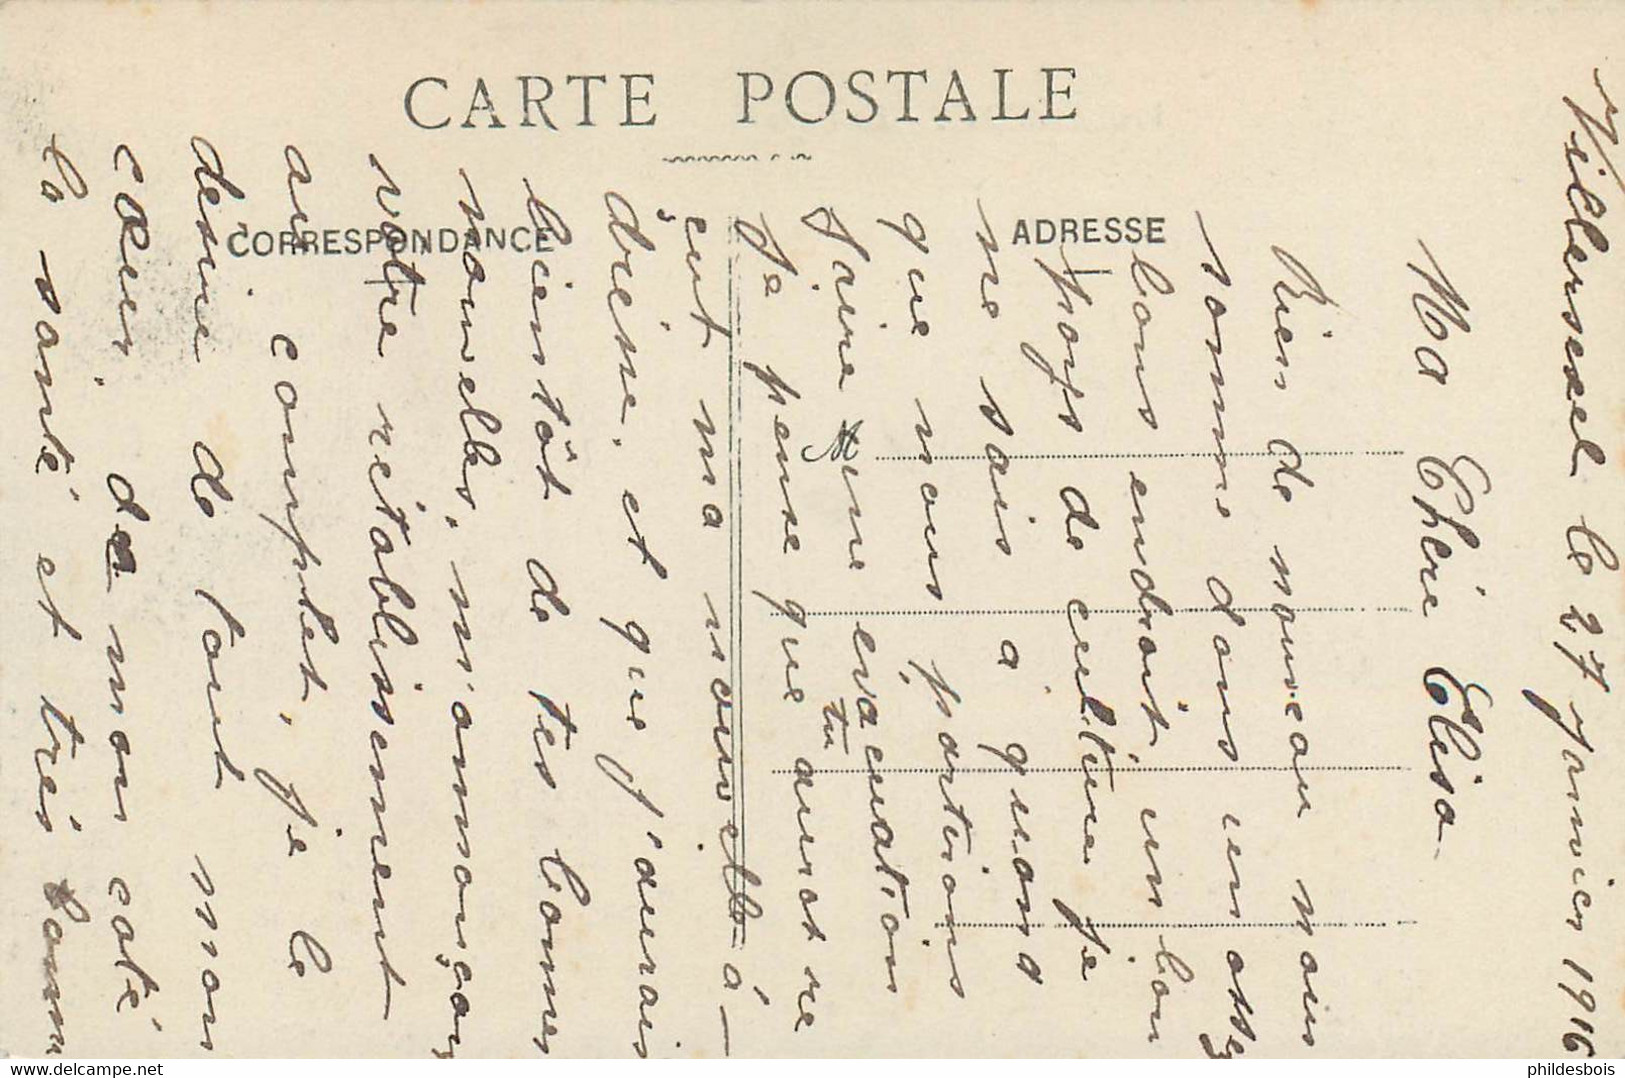 CARTE POSTALE
CORRESPONDANCE
ADRESSE
Villersexel le 27 Janvier 1916
Ma Chère Elisa
Rien de nouveau nous
somme dans un assez
bons endroit, un bon
pays de culture je
ne sais a quand
que nous partions
faire une evacuation
Je pense que tu aurat re
çut ma nouvelle a-
drèsse, et que j'aurais
bientôt de tes bonnes
nouvelles, m'annonçan
votre rétablissement
au complet, je le
désire de tout mon
cœur, de mon coté
la santé et très bonne
phildesbois
www.delcampe.net